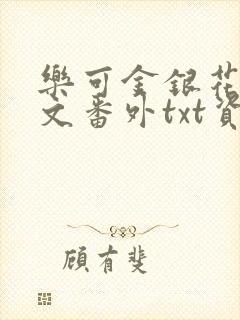 樂可金銀花
文番外txt資
顧有斐